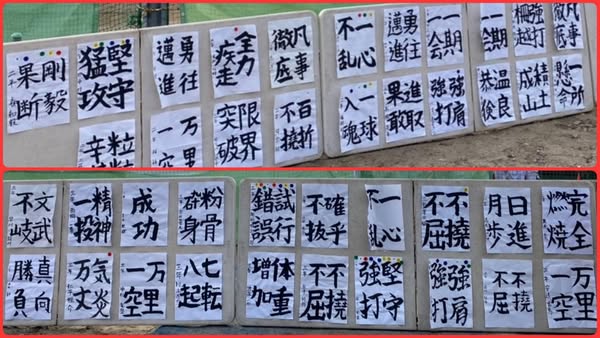 剛毅果断
堅守猛攻
勇往邁進
全力疾走
凡事徹底
一心不乱
勇往邁進
一期一会
一期一会
強打柵越
凡事徹底
粒粒辛
万里一空
限界突破
百折不撓
一球入魂
進取果敢
強肩強打
温良恭倹
積土成山
一所懸命
文武不岐
精神一投
成功
粉骨砕身
試行錯誤
確乎不抜
一心不乱
不撓不屈
日進月歩
完全燃焼
真向勝負
気炎万丈
万里一空
七転八起
体重増加
不撓不屈
堅守強打
強肩強打
不撓不屈
万里一空